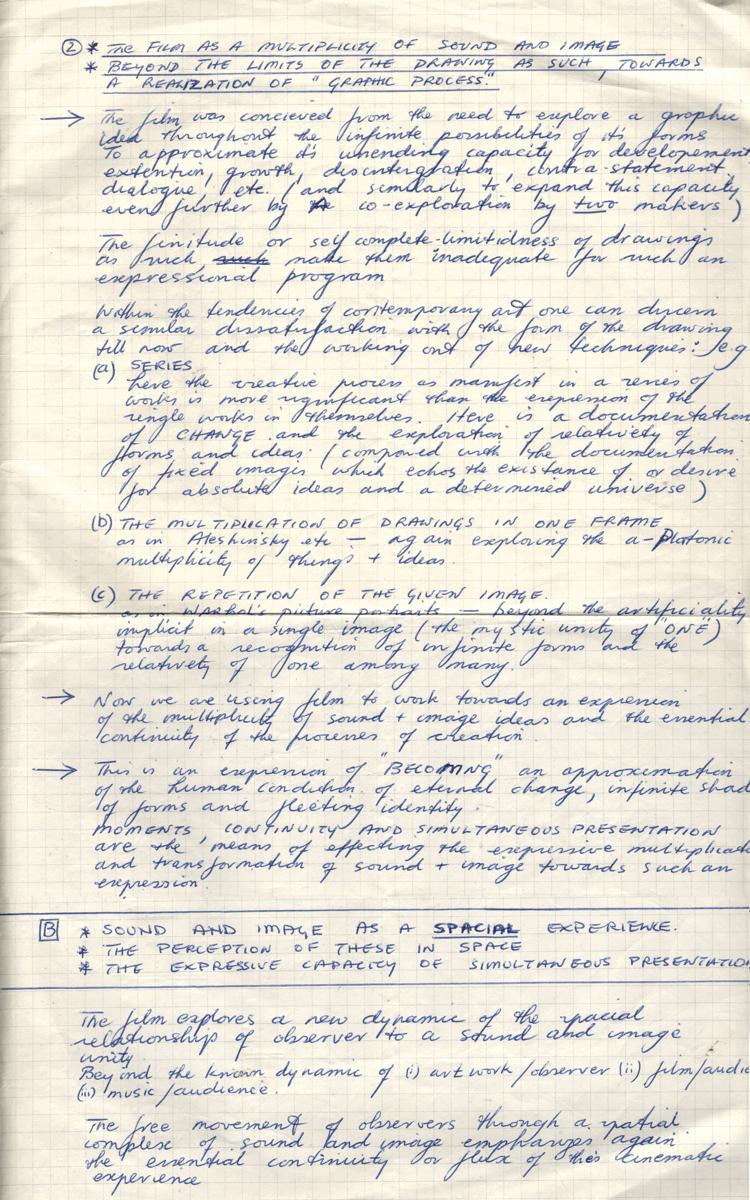 ② * THE FILM AS A MULTIPLICITY OF SOUND AND IMAGE
* BEYOND THE LIMITS OF THE DRAWING AS SUCH, TOWARDS
A REALIZATION OF "GRAPHIC PROCESS."
→ The film was concieved from the need to explore a graphic
idea throughout the infinite possibilities of it's forms
To approximate it's unending capacity for developement
extention, growth, disintergration, contra-statement,
dialogue, etc. (and similarly to expand this capacity
even further by co-exploration by two makers)
The finitude or self complete-limitidness of drawings
as such such make them inadequate for such an
expressional program
Within the tendencies of contemporary art one can discern
a similar dissatisfaction with the form of the drawing
till now and the working out of new techniques: e.g
(a) SERIES
here the creative process as manifest in a series of
works is more significant than the expression of the
single works in themselves. Here is a documentation
of CHANGE and the exploration of relativity of
forms and ideas (compared with the documentation
of fixed images which echos the existance of or desire
for absolute ideas and a determined universe)
(b) THE MULTIPLICATION OF DRAWINGS IN ONE FRAME
as in Aleshinsky etc — again exploring the a-Platonic
multiplicity of things + ideas.
(c) THE REPETITION OF THE GIVEN IMAGE.
as in Warhol's picture portraits — beyond the artificiality
implicit in a single image (the mystic unity of "ONE")
towards a recognition of infinite forms and the
relativity of one among many.
→ Now we are using film to work towards an expression
of the multiplicity of sound + image ideas and the essential
continuity of the processes of creation.
→ This is an expression of "BECOMING" an approximation
of the human condition of eternal change, infinite shad
of forms and fleeting identity.
MOMENTS, CONTINUITY AND SIMULTANEOUS PRESENTATION
are the means of effecting the expressive multiplicati
and transformation of sound + image towards such an
expression.
B * SOUND AND IMAGE AS A SPACIAL EXPERIENCE.
* THE PERCEPTION OF THESE IN SPACE
* THE EXPRESSIVE CAPACITY OF SIMULTANEOUS PRESENTATION
The film explores a new dynamic of the spacial
relationship of observer to a sound and image
unity.
Beyond the known dynamic of (i) art work/observer (ii) film/audie
(iii) music/audience.
The free movement of observers through a spatial
complex of sound and image emphasizes again
the essential continuity or flux of this cinematic
experience